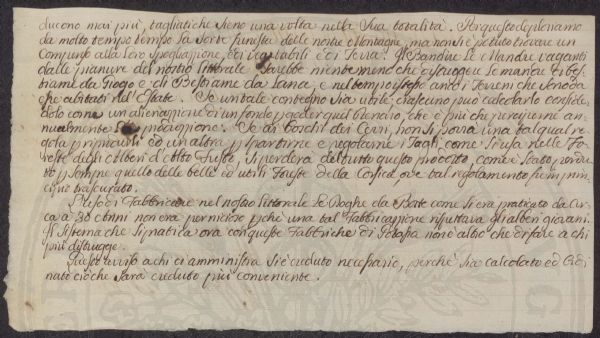 ducono mai più, tagliati che sieno una volta nella sua totalità. Per questo deploriamo
da molto tempo la sorte funesta delle nostre Montagne, ma non si è potuto trovare un
compenso alla loro spogliazione, e di vegetabili e di Terra. Il Bandire le Mandre vaganti
dalle pianure del nostro littorale sarebbe niente meno che distrugere le mandre di bes-
tiame da Giogo e di Bestiame da Lana, e nel tempo istesso anco i Terreni che
abitati nell'Estate. Se un tale contegno sia utile, ciascuno può calcolarlo conside-
dolo come un alienazione di un fondo p goder quel bilancio, che è più che
nualmente produzione. Se ai boschi dei Cerri, non si porrà una tal qual re-
gola p ripulirli ed un altra p ripartirne e regolarne i Tagli, come si usa nelle Fo-
reste degli alberi d'alto Fusto, si perderà del tutto questo prodotto, com'è stato perdu-
to p sempre quello delle belle ed utili Foreste della Corsica, ove tal regolamento fù in prin-
cipio trascurato.
Il Fabbricare nel nostro littorale le Doghe da Botte come si era praticato da cir-
ca a 30 Anni non era pernicioso p chè una tal Fabbricazione rifiuttava gli alberi giovani.
Il sistema che si pratica ora con queste Fabbriche di Potassa non è altro che di fare a chi
più distrugge.
Questo avviso a chi ci amministra si è creduto necessario, perchè sia calcolato ed ordi-
nato ciò che sarà creduto più conveniente.